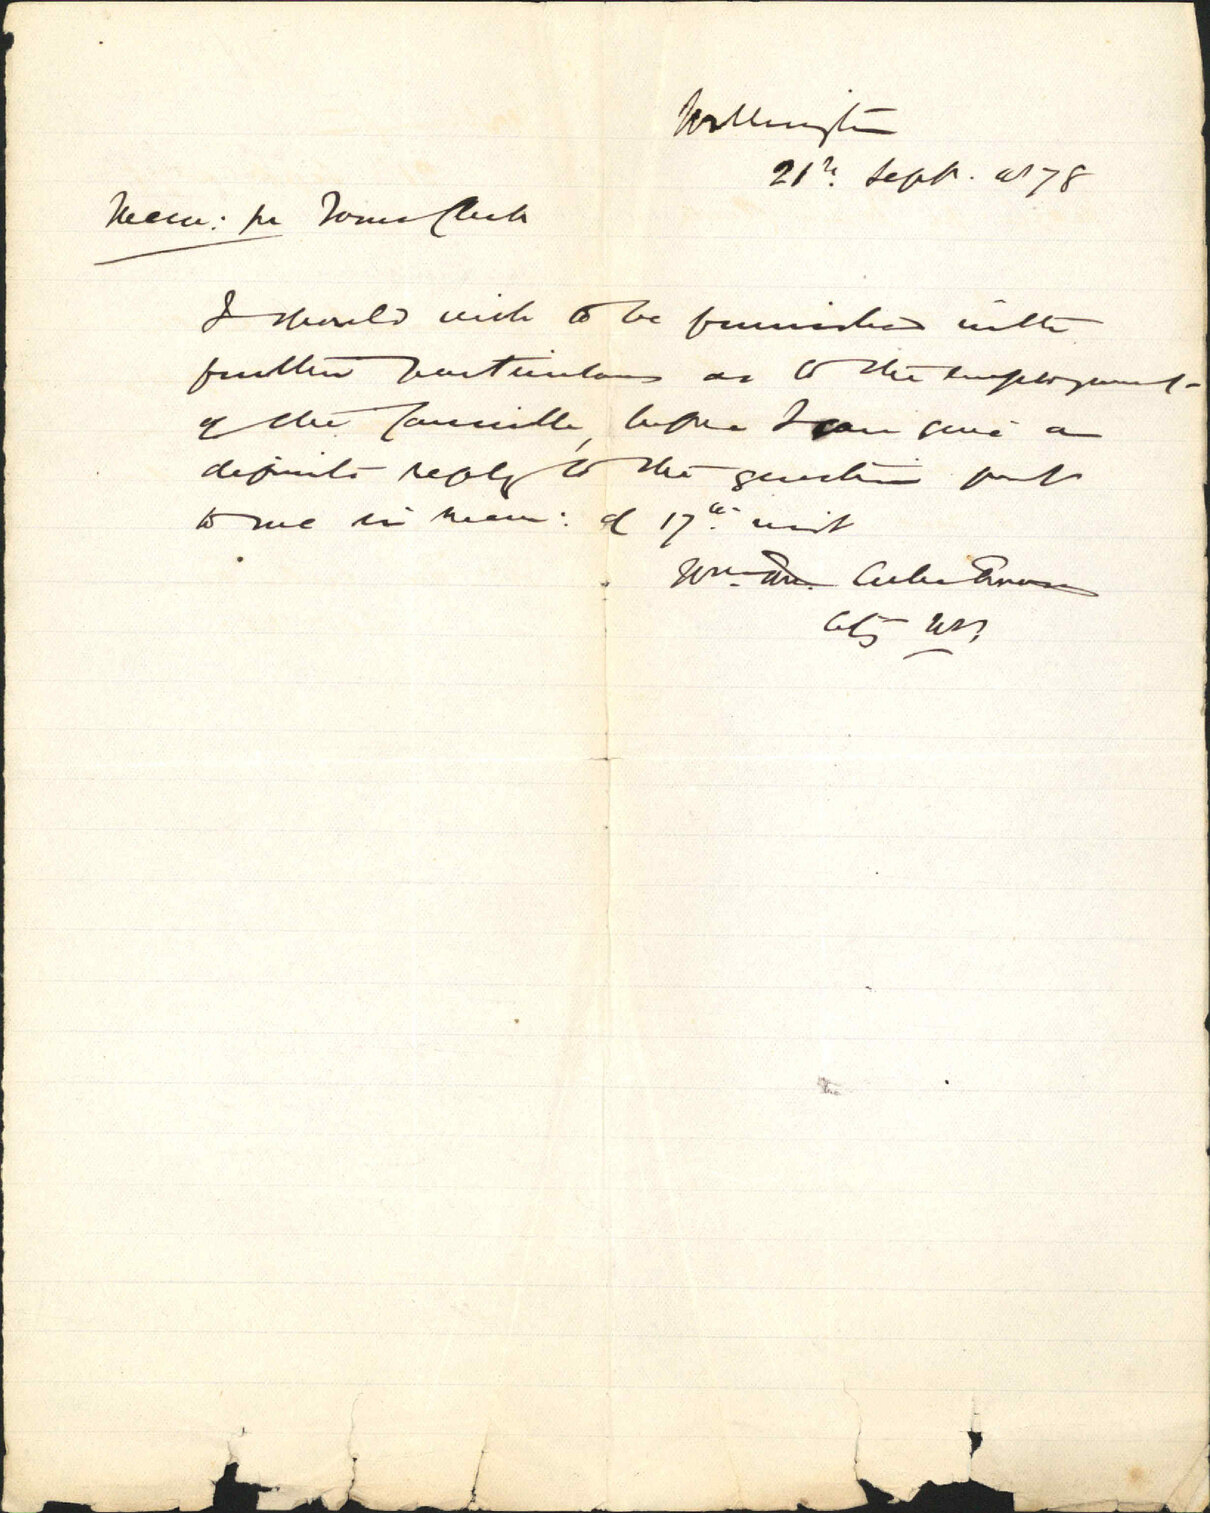 Wellington
21st. Sept. 1878
Memo: for Town Clerk
I should wish to be furnished with
further particulars as to the employment
of the Committee, before I can give a
definite reply to the question put
to me in Memo: of 17th. inst
Wm.
City